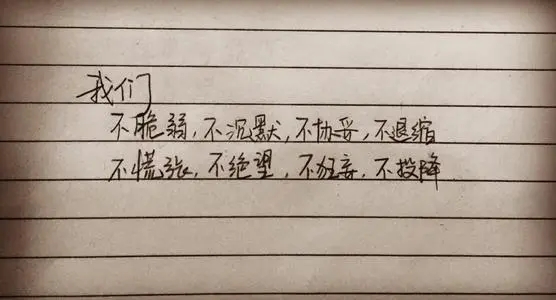 我们
不脆弱，不沉默，不协妥，不退缩
不慌张，不绝望，不狂妄，不投降